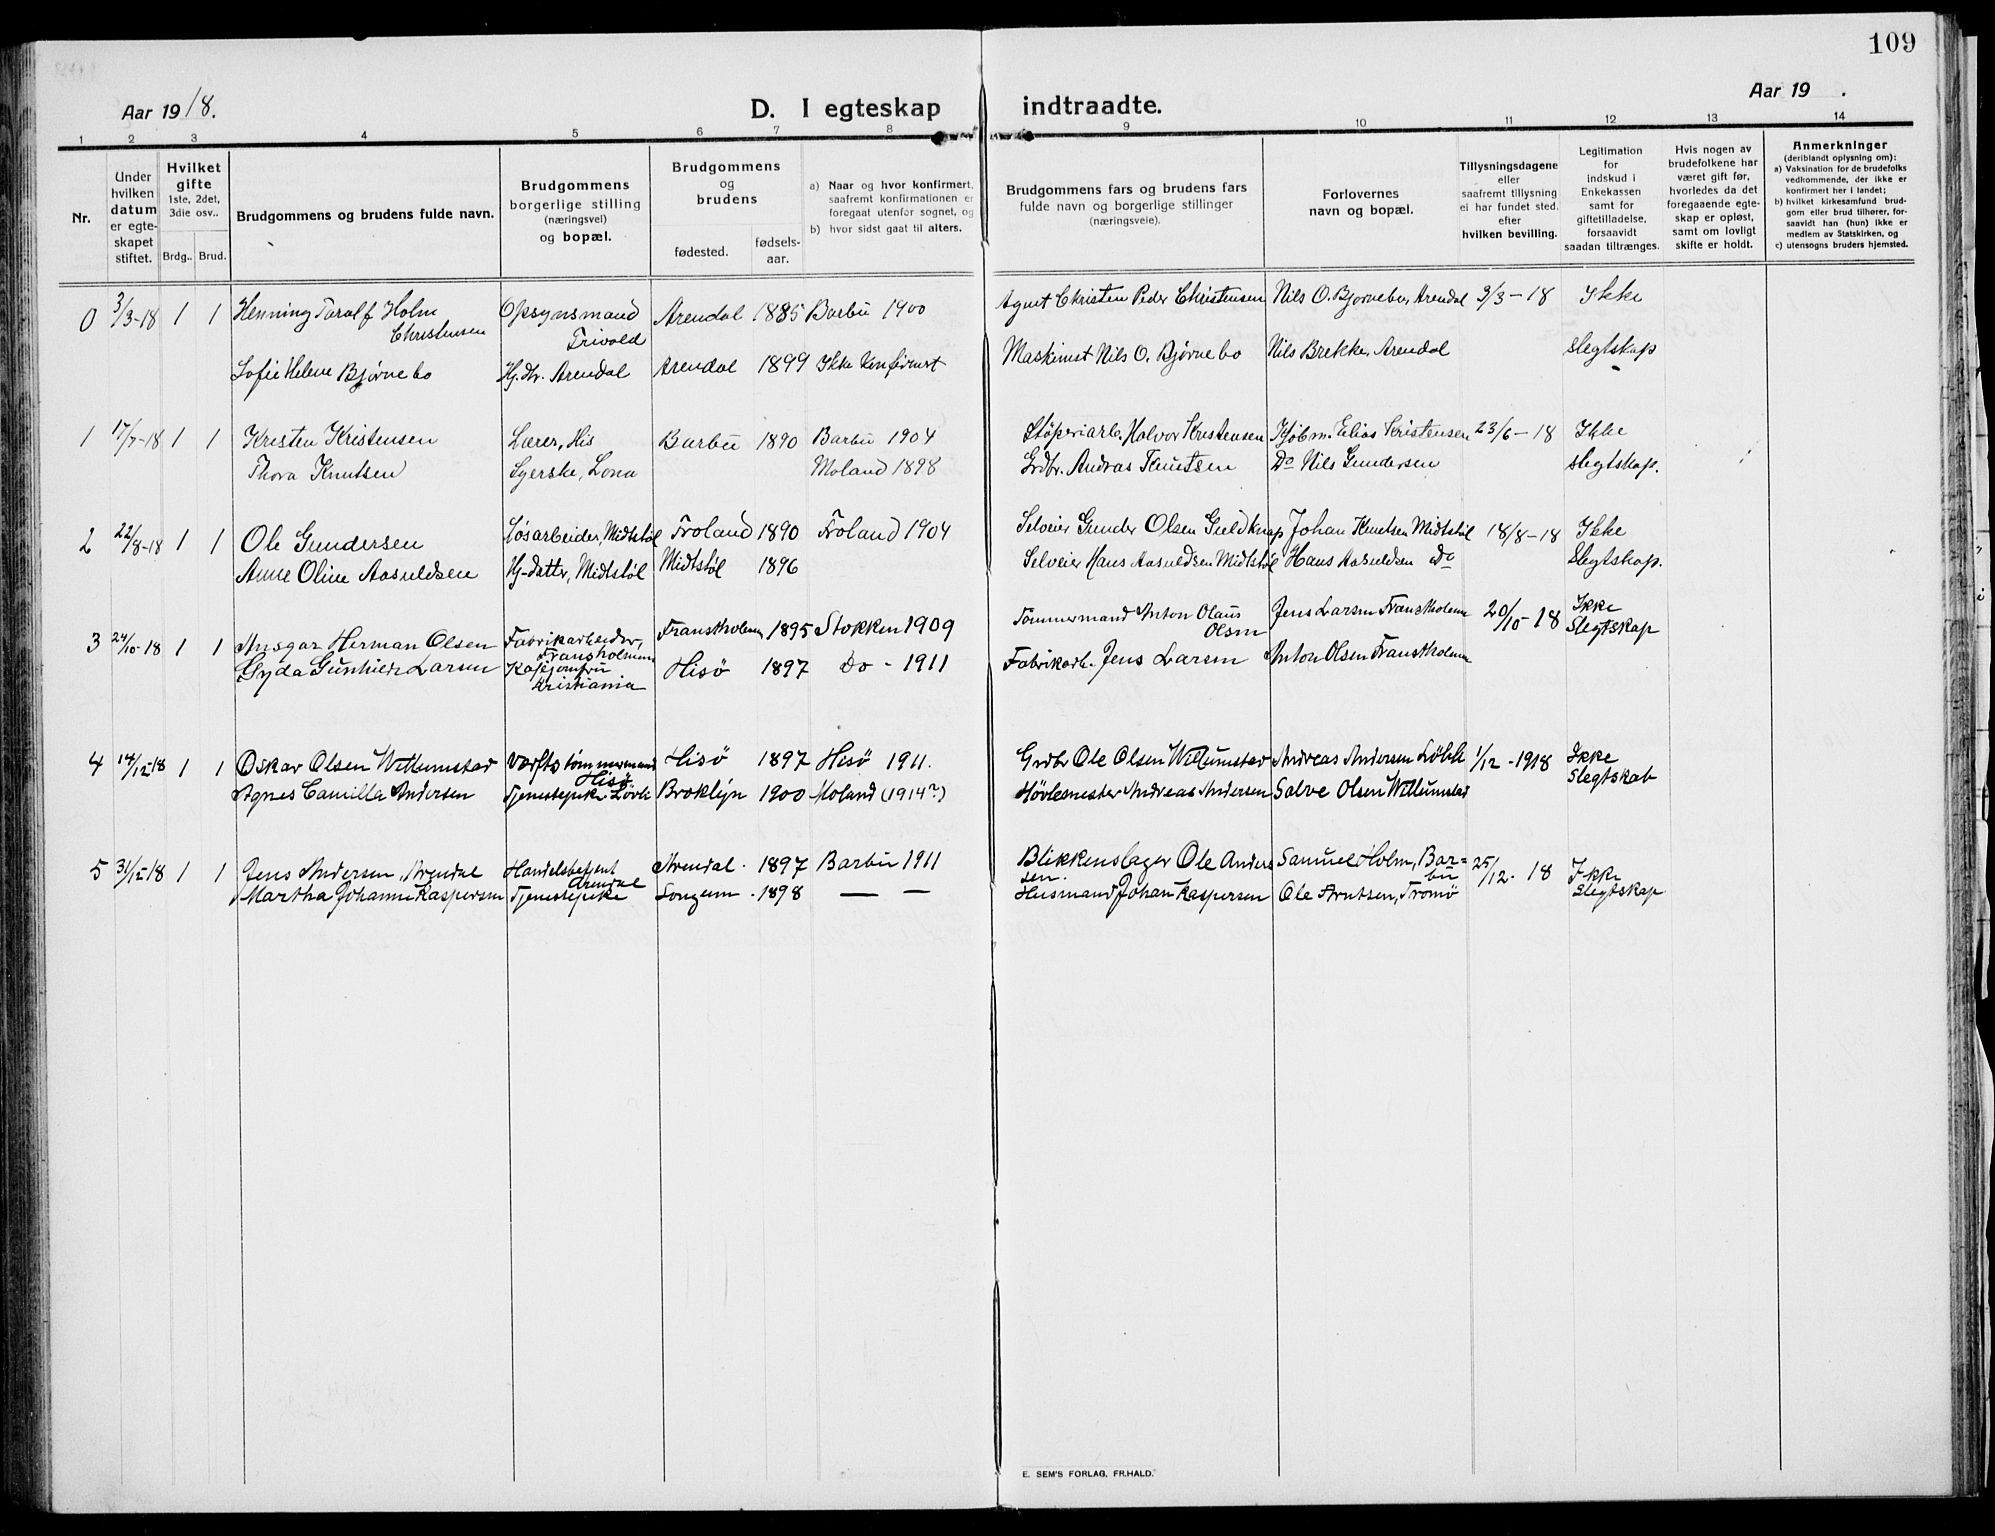 109
Aar 1918.
D. I egteskap indtraadte.
Aar 19 .
1 2 3 4 5 6 7 8 9 10 11 12 13 14
Nr.
Under
hvilken
datum
er egte-
skapet
stiftet.
Hvilket
gifte
1ste, 2det,
3die osv..
Brdg.. Brud.
Brudgommens og brudens fulde navn.
Brudgommens
borgerlige stilling
(næringsvei)
og bopæl.
Brudgommens
og
brudens
fødested.
fødsels-
aar.
a) Naar og hvor konfirmert,
saafremt konfirmationen er
foregaat utenfor sognet, og
b) hvor sidst gaat til alters.
Brudgommens fars og brudens fars
fulde navn og borgerlige stillinger
(næringsveie).
Forlovernes
navn og bopæl.
Tillysningsdagene
eller
saafremt tillysning
ei har fundet sted,
efter
hvilken bevilling.
Legitimation
for
indskud i
Enkekassen
samt for
giftetilladelse,
forsaavidt
saadan tiltrænges.
Hvis nogen av
brudefolkene har
været gift før,
hvorledes da det
foregaaende egte-
skap er opløst,
samt om lovligt
skifte er holdt.
Anmerkninger
(deriblandt oplysning om):
a) Vaksination for de brudefolks
vedkommende, der ikke er
konfirmert her i landet;
b) hvilket kirkesamfund brud-
gom eller brud tilhører, for-
saavidt han (hun) ikke er
medlem av Statskirken, og
c) utensogns bruders hjemsted.
0 3/3-18 1 1 Henning Taralf Holm Opsynsmand Arendal 1885 Barbu 1900 Agent Christen Peder Christensen Nils O. Bjørnebo, Arendal 3/3-18 Ikke
Christensen Trivold
Sofie Helene Bjørnebo Hj.dtr. Arendal Arendal 1899 Ikke Konfirmert Maskinist Nils O. Bjørnebo Nils Brekke, Arendal slegtskap
1 17/7-18 1 1 Kresten Kristensen Lærer, His Barbu 1890 Barbu 1904 Støperiarb. Halvor Kristensen Kjøbm. Elias Kristensen 23/6-18 Ikke
Thora Knutsen Syerske, Lona Moland 1898 Grdbr. Andras Knutsen Do Nils Gundersen slegtskap.
2 22/8-18 1 1 Ole Gundersen Løsarbeider, Midtstøl Froland 1890 Froland 1904 Selveier Gunder Olsen Guldknap Johan Knutsen Midtstøl 18/8-18 Ikke
Anne Oline Aasuldsen Hj-datter, Midtstøl Midtstøl 1896 Selveier Hans Aasuldsen Midtstøl Hans Aasuldsen Do Slegtskap.
3 24/10-18 1 1 Ansgar Herman Olsen Fabrikarbeider, Franskholmen 1895 Stokken 1909 Tømmermand Anton Olaus Jens Larsen Franskholmen 20/10-18 Ikke
Fransholmen Olsen Slegtskap
Gyda Gunhild Larsen Kafejomfru Hisø 1897 Do - 1911 Fabrikarb. Jens Larsen Anton Olsen Franskholmen
Kristiania
4 14/12-18 1 1 Oskar Olsen Willumstad Værftstømmermand Hisø 1897 Hisø 1911. Grdbr Ole Olsen Willumstad Andreas Andersen Løvli 1/12-1918 Ikke
Hisø Slegtskab
Agnes Camilla Andersen Tjenestepike Løvli Broklyn 1900 Moland (1914?) Høvlesmester Andreas Andersen Salve Olsen Willumstad
5 31/12-18 1 1 Jens Andersen, Arendal Handelsbetjent Arendal. 1897 Barbu 1911 Blikkenslager Ole Ander- Samuel Holm, Bar= 25/12-18 Ikke
Arendal sen. bu
Martha Johanne Kaspersen Tjenestepike Songum. 1898 — — Husmand Johan Kaspersen Ole Arntsen, Tromø Slegtskap
E. SEM'S FORLAG, FR.HALD.